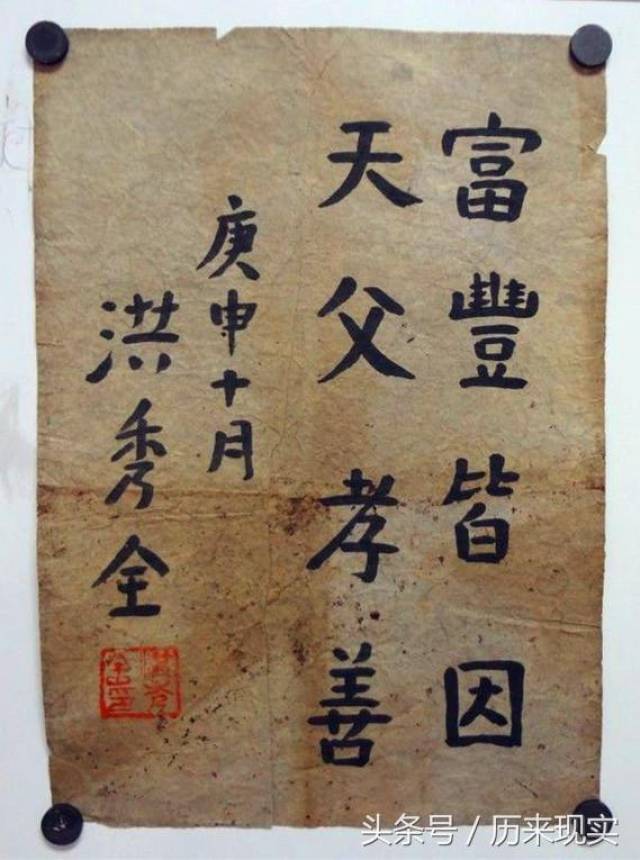 富豐皆因
天父孝善
庚申十月
洪秀全
头条号／历来现实